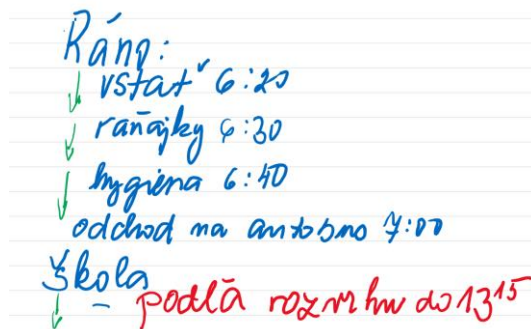 Ráno:
vstať 6:20
raňajky 6:30
hygiena 6:40
odchod na autobus 7:00
Škola
- podľa rozvrhu do 13¹⁵